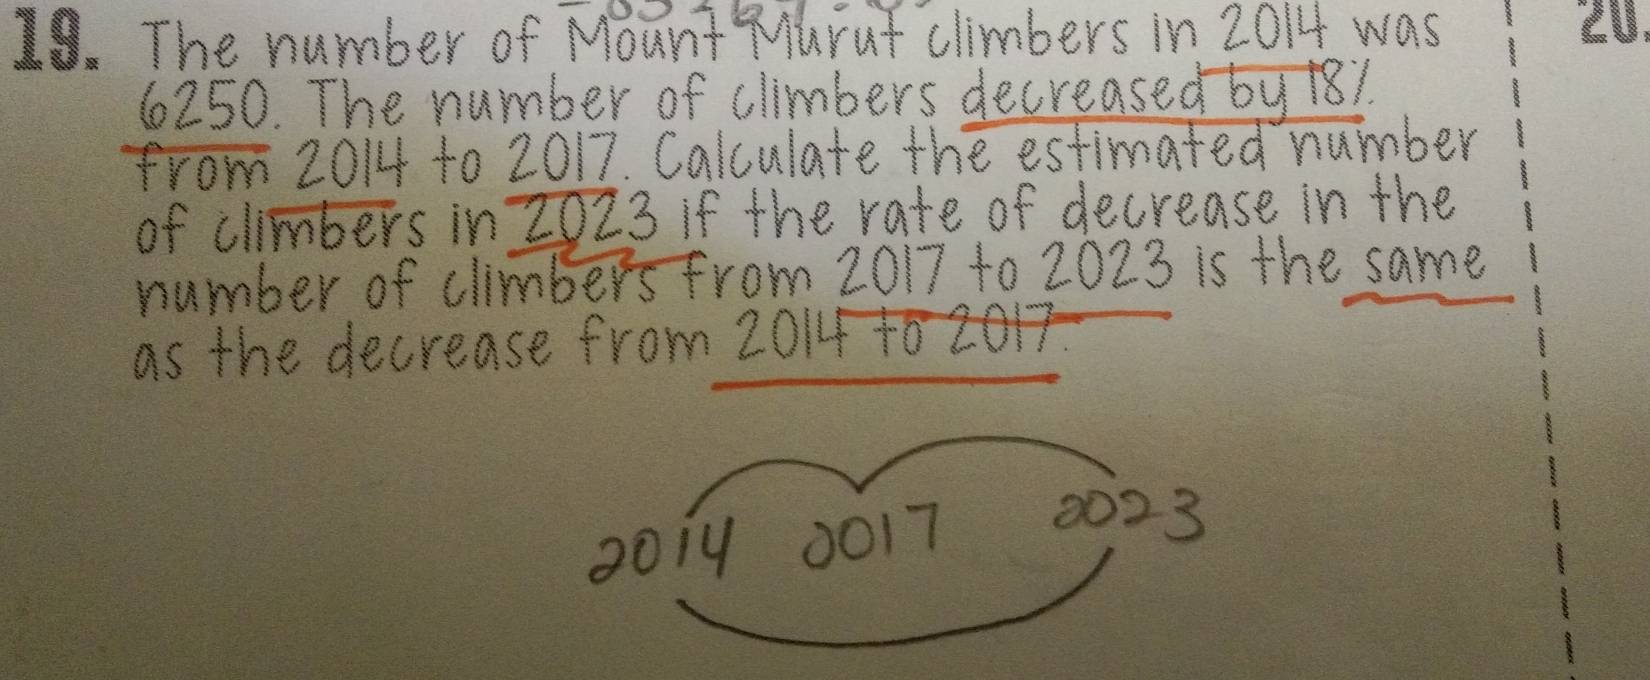 19. The number of Mount Murut climbers in 2014 was
20.
6250. The number of climbers decreased by 18%
from 2014 to 2017. Calculate the estimated number
of climbers in 2023 if the rate of decrease in the
number of climbers from 2017 to 2023 is the same
as the decrease from 2014 to 2017.
2014 2017 2023